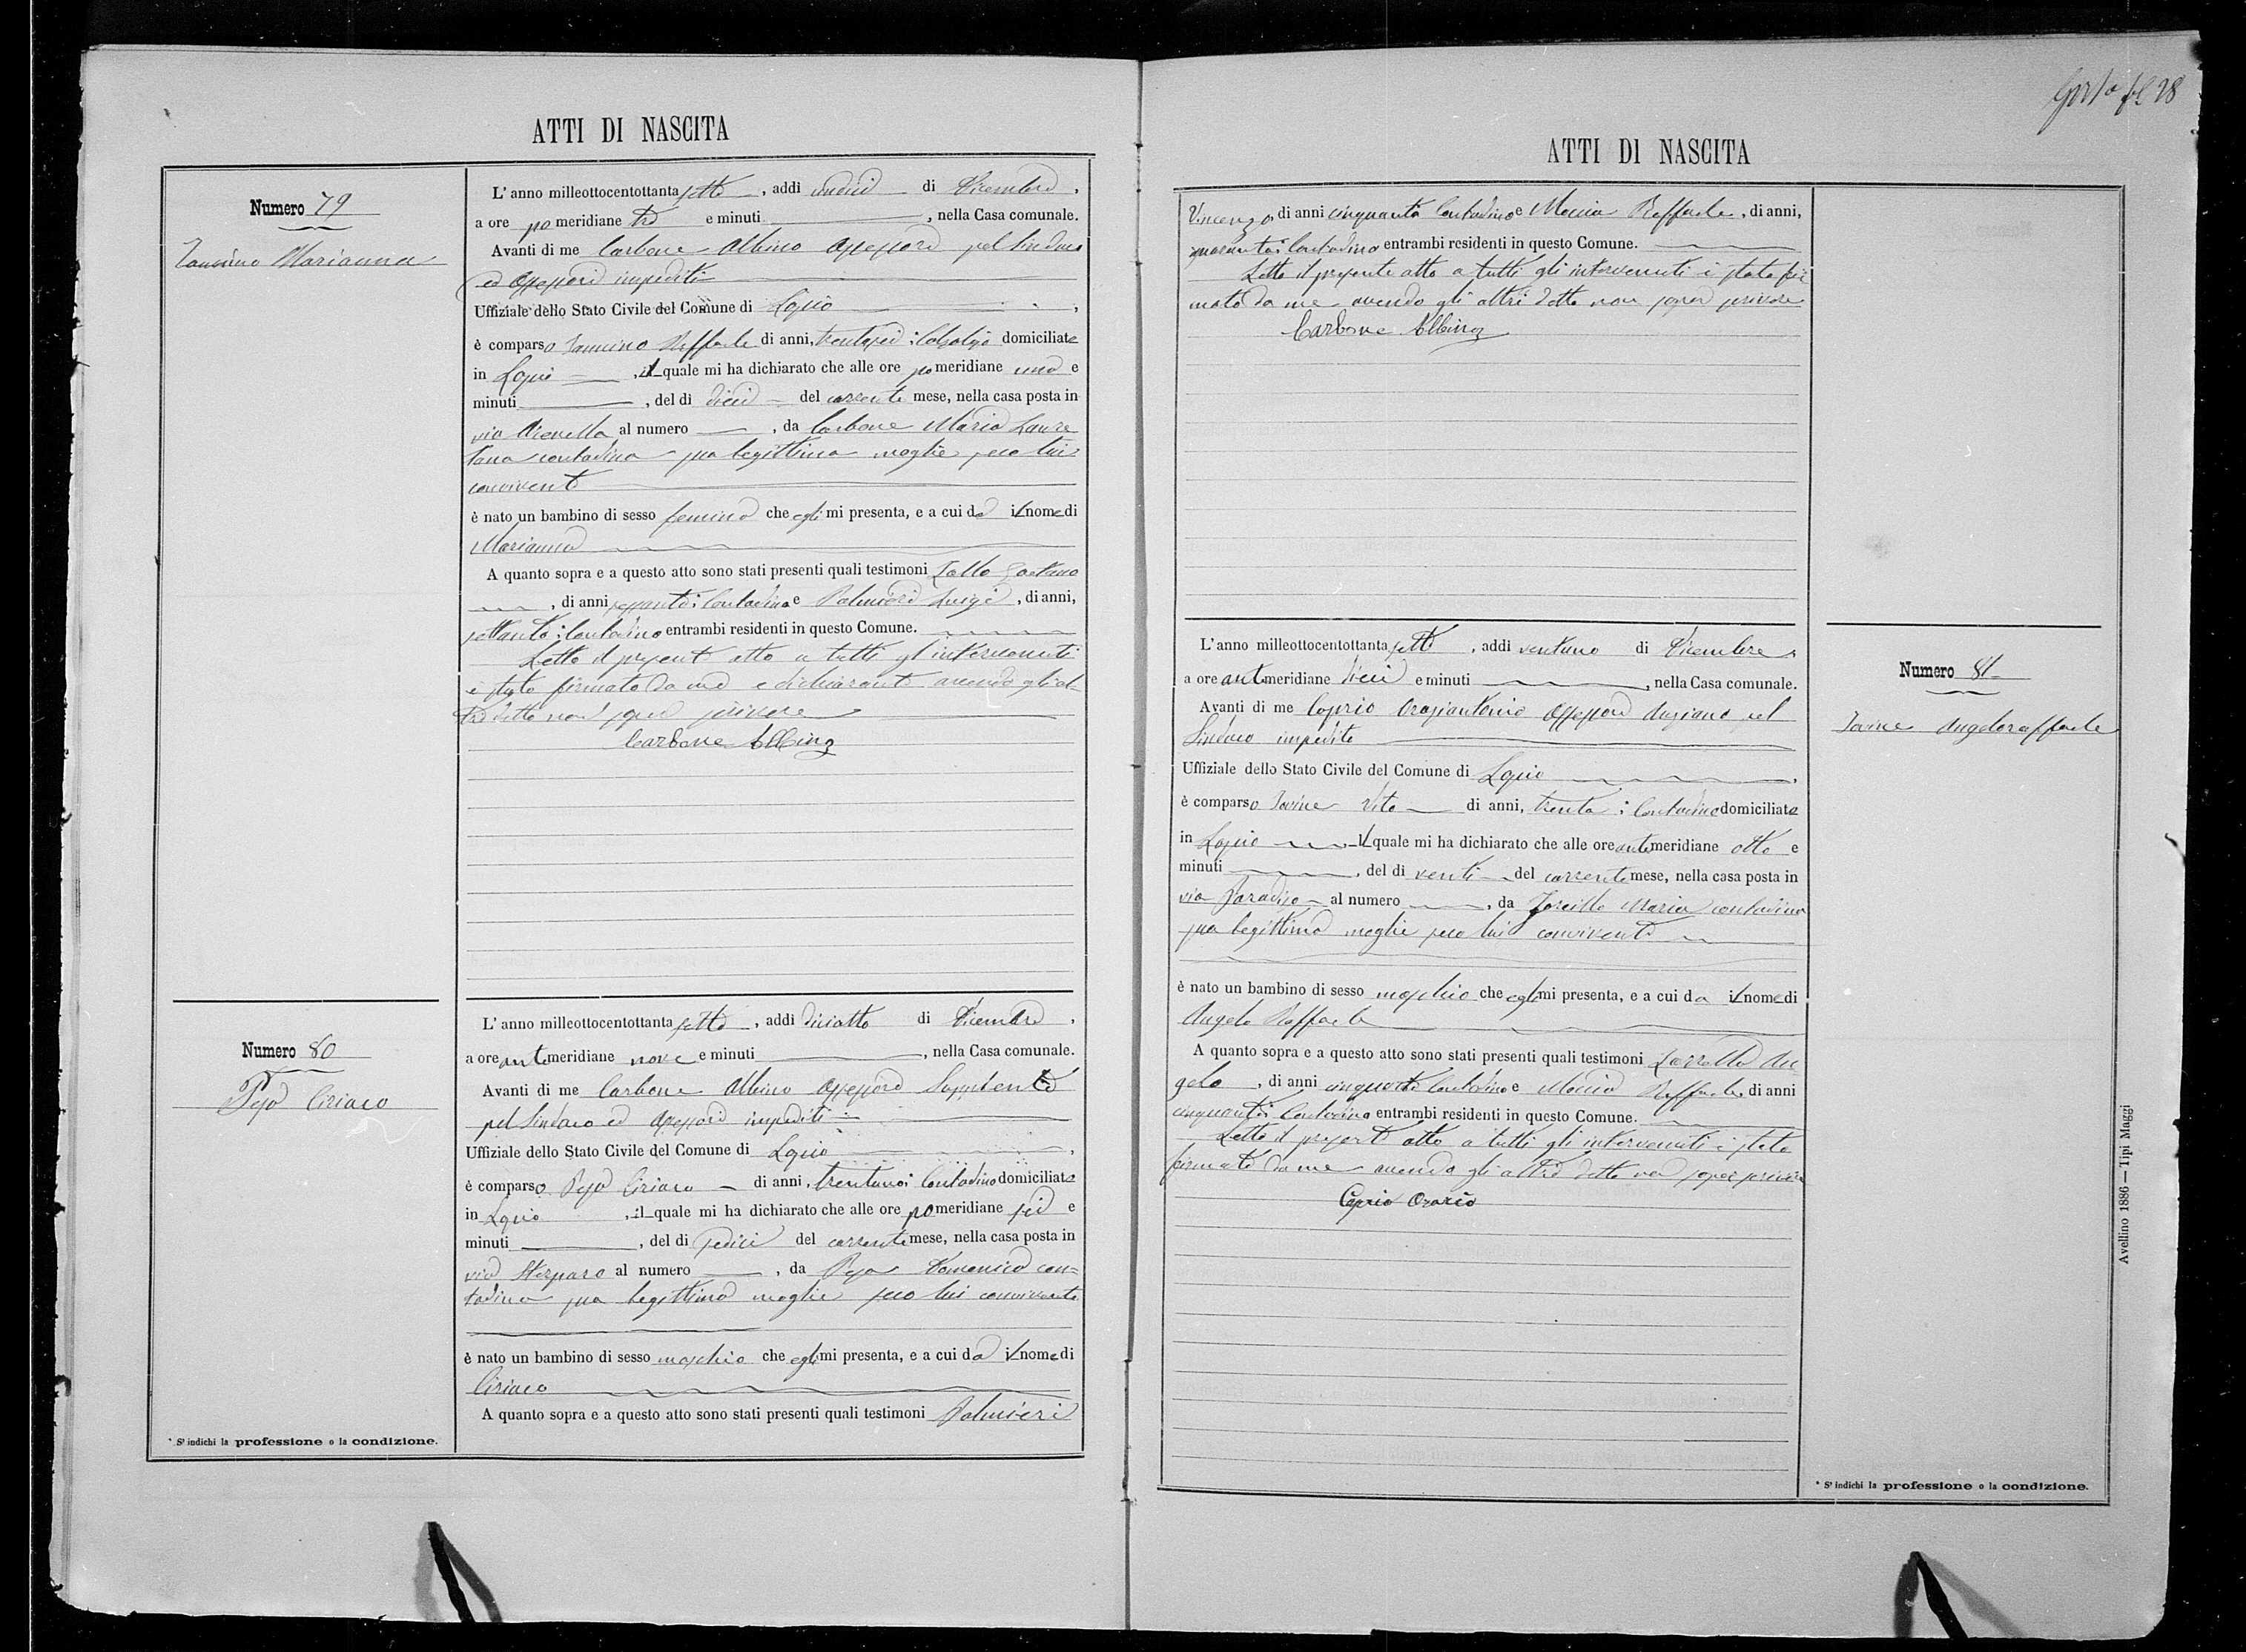 ATTI DI NASCITA
Numero 79
Iannino Marianna
L'anno milleottocentottanta sette, addi undici di Dicembre,
a ore po meridiane tre e minuti, nella Casa comunale.
Avanti di me Carbone Albino Assessore pel Sindaco
ed Assessori impediti
Uffiziale dello Stato Civile del Comune di Lapio,
è comparso Iannino Raffaele di anni, trentasei; Calzolajo domiciliato
in Lapio, il quale mi ha dichiarato che alle ore po meridiane una e
minuti, del di dieci del corrente mese, nella casa posta in
via Arenella al numero, da Carbone Maria Laure
tana contadina sua legittima moglie seco lui
convivente
è nato un bambino di sesso femina che egli mi presenta, e a cui da il nome di
Marianna
A quanto sopra e a questo atto sono stati presenti quali testimoni Gaetano
, di anni sessanta; Contadino e Palmieri Luigi, di anni,
settanta; Contadino entrambi residenti in questo Comune.
Letto il presente atto a tutti gl'intervenuti
è stato firmato da me e dichiarante avendo gli al-
tri detto non saper scrivere
Carbone Albino
Numero 80
Pepe Ciriaco
L'anno milleottocentottanta sette, addi diciotto di Dicembre,
a ore antemeridiane nove e minuti, nella Casa comunale.
Avanti di me Carbone Albino Assessore Supplente
pel Sindaco ed Assessori impediti
Uffiziale dello Stato Civile del Comune di Lapio,
è comparso Pepe Ciriaco di anni, trentuno; Contadino domiciliato
in Lapio, il quale mi ha dichiarato che alle ore pomeridiane sei e
minuti, del di sedici del corrente mese, nella casa posta in
via Sterparo al numero, da Pepe Domenica con-
tadina sua legittima moglie seco lui convivente
è nato un bambino di sesso maschio che egli mi presenta, e a cui da il nome di
Ciriaco
A quanto sopra e a questo atto sono stati presenti quali testimoni Palmieri
* S'indichi la professione o la condizione.
28
ATTI DI NASCITA
Vincenzo, di anni cinquanta Contadino e Moccia Raffaele, di anni,
quaranta; Contadino entrambi residenti in questo Comune.
Letto il presente atto a tutti gli intervenuti è stato fir
mato da me avendo gli altri detto non saper scrivere
Carbone Albino
L'anno milleottocentottanta sette, addi ventuno di Dicembre,
a ore antimeridiane dieci e minuti, nella Casa comunale.
Avanti di me Caprio Oraziantonio Assessore Anziano pel
Sindaco impedito
Uffiziale dello Stato Civile del Comune di Lapio,
è comparso Iovine Vito di anni, trenta; Contadino domiciliato
in Lapio il quale mi ha dichiarato che alle ore antimeridiane otto e
minuti, del di venti del corrente mese, nella casa posta in
via Paradiso al numero, da Maria contadina
sua legittima moglie seco lui convivente
è nato un bambino di sesso maschio che egli mi presenta, e a cui da il nome di
Angelo Raffaele
A quanto sopra e a questo atto sono stati presenti quali testimoni An
gelo, di anni cinquanta Contadino e Moccia Raffaele, di anni
cinquanta; Contadino entrambi residenti in questo Comune.
Letto il presente atto a tutti gli intervenuti è stato
firmato da me avendo gli altri detto non saper scrivere
Caprio Orazio
Numero 81
Iovine Angeloraffaele
* S'indichi la professione o la condizione.
Avellino 1886 — Tipi Maggi